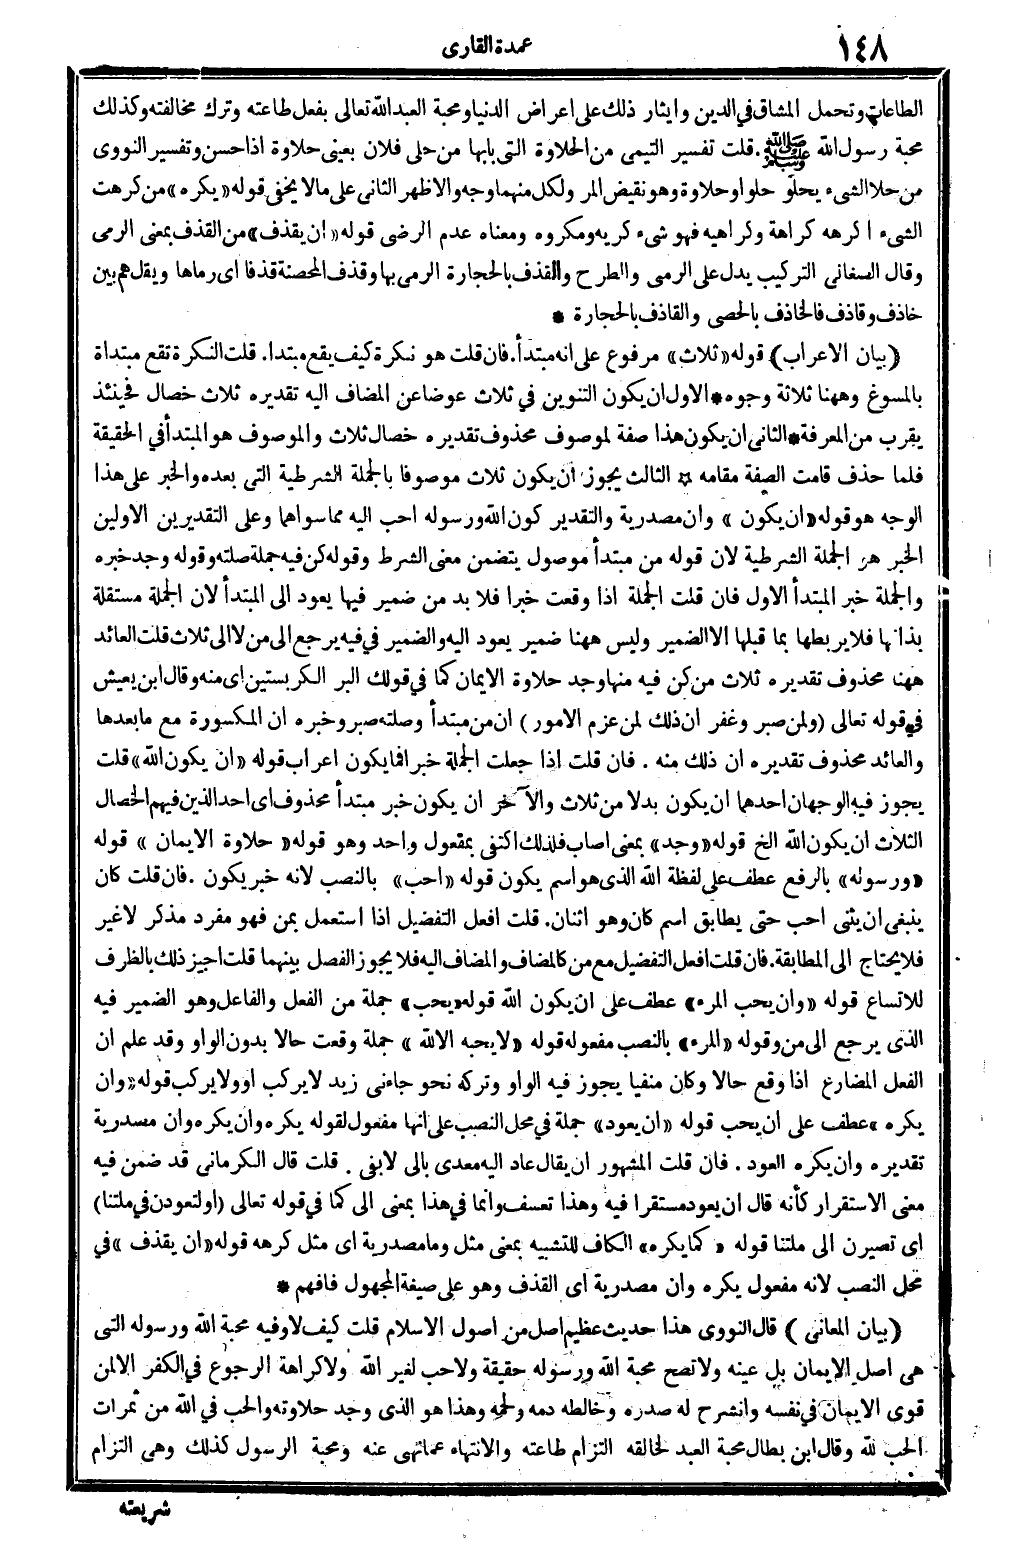 ١٤٨
عمدة القارى
الطاعات وتحمل المشاق في الدين وايثار ذلك على اعراض الدنيا ومحبة العبد الله تعالى بفعل طاعته وترك مخالفته وكذلك
محبة رسول الله ﷺ. قلت تفسير التيمى من الحلاوة التى بابها من حلى فلان بعينى حلاوة اذا حسن وتفسير النووى
من حلا الشىء يحلو حلوا وحلاوة وهو نقيض المر ولكل منهما وجه والاظهر الثانى على مالا يخفى قوله «يكره» من كرهت
الشىء اكرهه كراهة وكراهيه فهو شىء كريه ومكروه ومعناه عدم الرضى قوله «ان يقذف» من القذف بمعنى الرمى
وقال السغانى التركيب يدل على الرمى والطرح والقذف بالحجارة الرمى بها وقذف المحصنة قذفا اى رماها ويقل هم بين
خاذف وقاذف فالخاذف بالحصى والقاذف بالحجارة *
(بيان الاعراب) قوله «ثلاث» مرفوع على انه مبتدأ. فان قلت هو نكرة كيف يقع مبتدا. قلت النكرة تقع مبتداة
بالمسوغ وههنا ثلاثة وجوه * الاول ان يكون التنوين في ثلاث عوضا عن المضاف اليه تقديره ثلاث خصال فحينئذ
يقرب من المعرفة * الثانى ان يكون هذا صفة لموصوف محذوف تقديره خصال ثلاث والموصوف هو المبتدأ في الحقيقة
فلما حذف قامت الصفة مقامه * الثالث يجوز ان يكون ثلاث موصوفا بالجملة الشرطية التى بعده والخبر على هذا
الوجه هو قوله «ان يكون» وان مصدرية والتقدير كون الله ورسوله احب اليه مما سواهما وعلى التقديرين الاولين
الخبر هو الجملة الشرطية لان قوله من مبتدأ موصول يتضمن معنى الشرط وقوله كن فيه جملة صلته وقوله وجد خبره
والجملة خبر المبتدأ الاول فان قلت الجملة اذا وقعت خبرا فلا بد من ضمير فيها يعود الى المبتدأ لان الجملة مستقلة
بذاتها فلا يربطها بما قبلها الا الضمير وليس ههنا ضمير يعود اليه والضمير في فيه يرجع الى من لا الى ثلاث قلت العائد
ههنا محذوف تقديره ثلاث من كن فيه منها وجد حلاوة الايمان كما في قولك البر الكر بستين اى منه وقال ابن يعيش
في قوله تعالى (ولمن صبر وغفر ان ذلك لمن عزم الامور) ان من مبتدأ وصلته صبر وخبره ان المكسورة مع مابعدها
والعائد محذوف تقديره ان ذلك منه . فان قلت اذا جعلت الجملة خبرا فما يكون اعراب قوله «ان يكون الله» قلت
يجوز فيه الوجهان احدهما ان يكون بدلا من ثلاث والآخر ان يكون خبر مبتدأ محذوف اى احد الذين فيهم الخصال
الثلاث ان يكون الله الخ قوله «وجد» بمعنى اصاب فلذلك اكتفى بمفعول واحد وهو قوله «حلاوة الايمان» قوله
«ورسوله» بالرفع عطف على لفظة الله الذى هو اسم يكون قوله «احب» بالنصب لانه خبر يكون . فان قلت كان
ينبغى ان يثنى احب حتى يطابق اسم كان وهو اثنان. قلت افعل التفضيل اذا استعمل بمن فهو مفرد مذكر لاغير
فلا يحتاج الى المطابقة. فان قلت افعل التفضيل مع من كالمضاف والمضاف اليه فلا يجوز الفصل بينهما قلت اجيز ذلك بالظرف
للاتساع قوله «وان يحب المرء» عطف على ان يكون الله قوله «يحب» جملة من الفعل والفاعل وهو الضمير فيه
الذى يرجع الى من وقوله «المرء» بالنصب مفعوله قوله «لا يحبه الا لله» جملة وقعت حالا بدون الواو وقد علم ان
الفعل المضارع اذا وقع حالا وكان منفيا يجوز فيه الواو وتركه نحو جاءنى زيد لا يركب او ولا يركب قوله «وان
يكره» عطف على ان يحب قوله «ان يعود» جملة في محل النصب على انها مفعول لقوله يكره وان يكره وان مصدرية
تقديره وان يكره العود . فان قلت المشهور ان يقال عاد اليه معدى بالى لا بفى . قلت قال الكرمانى قد ضمن فيه
معنى الاستقرار كأنه قال ان يعود مستقرا فيه وهذا تعسف وانما في هذا بمعنى الى كما في قوله تعالى (او لتعودن في ملتنا)
اى تصيرن الى ملتنا قوله «كما يكره» الكاف للتشبيه بمعنى مثل وما مصدرية اى مثل كرهه قوله «ان يقذف» في
محل النصب لانه مفعول يكره وان مصدرية اى القذف وهو على صيغة المجهول فافهم *
(بيان المعانى) قال النووى هذا حديث عظيم اصل من اصول الاسلام قلت كيف لا وفيه محبة الله ورسوله التى
هى اصل الايمان بل عينه ولا تصح محبة الله ورسوله حقيقة ولا حب لغير الله ولا كراهة الرجوع في الكفر الا لمن
قوى الايمان في نفسه وانشرح له صدره وخالطه دمه ولحمه وهذا هو الذى وجد حلاوته والحب في الله من ثمرات
الحب لله وقال ابن بطال محبة العبد لخالقه التزام طاعته والانتهاء عما نهى عنه ومحبة الرسول كذلك وهى التزام
شريعته